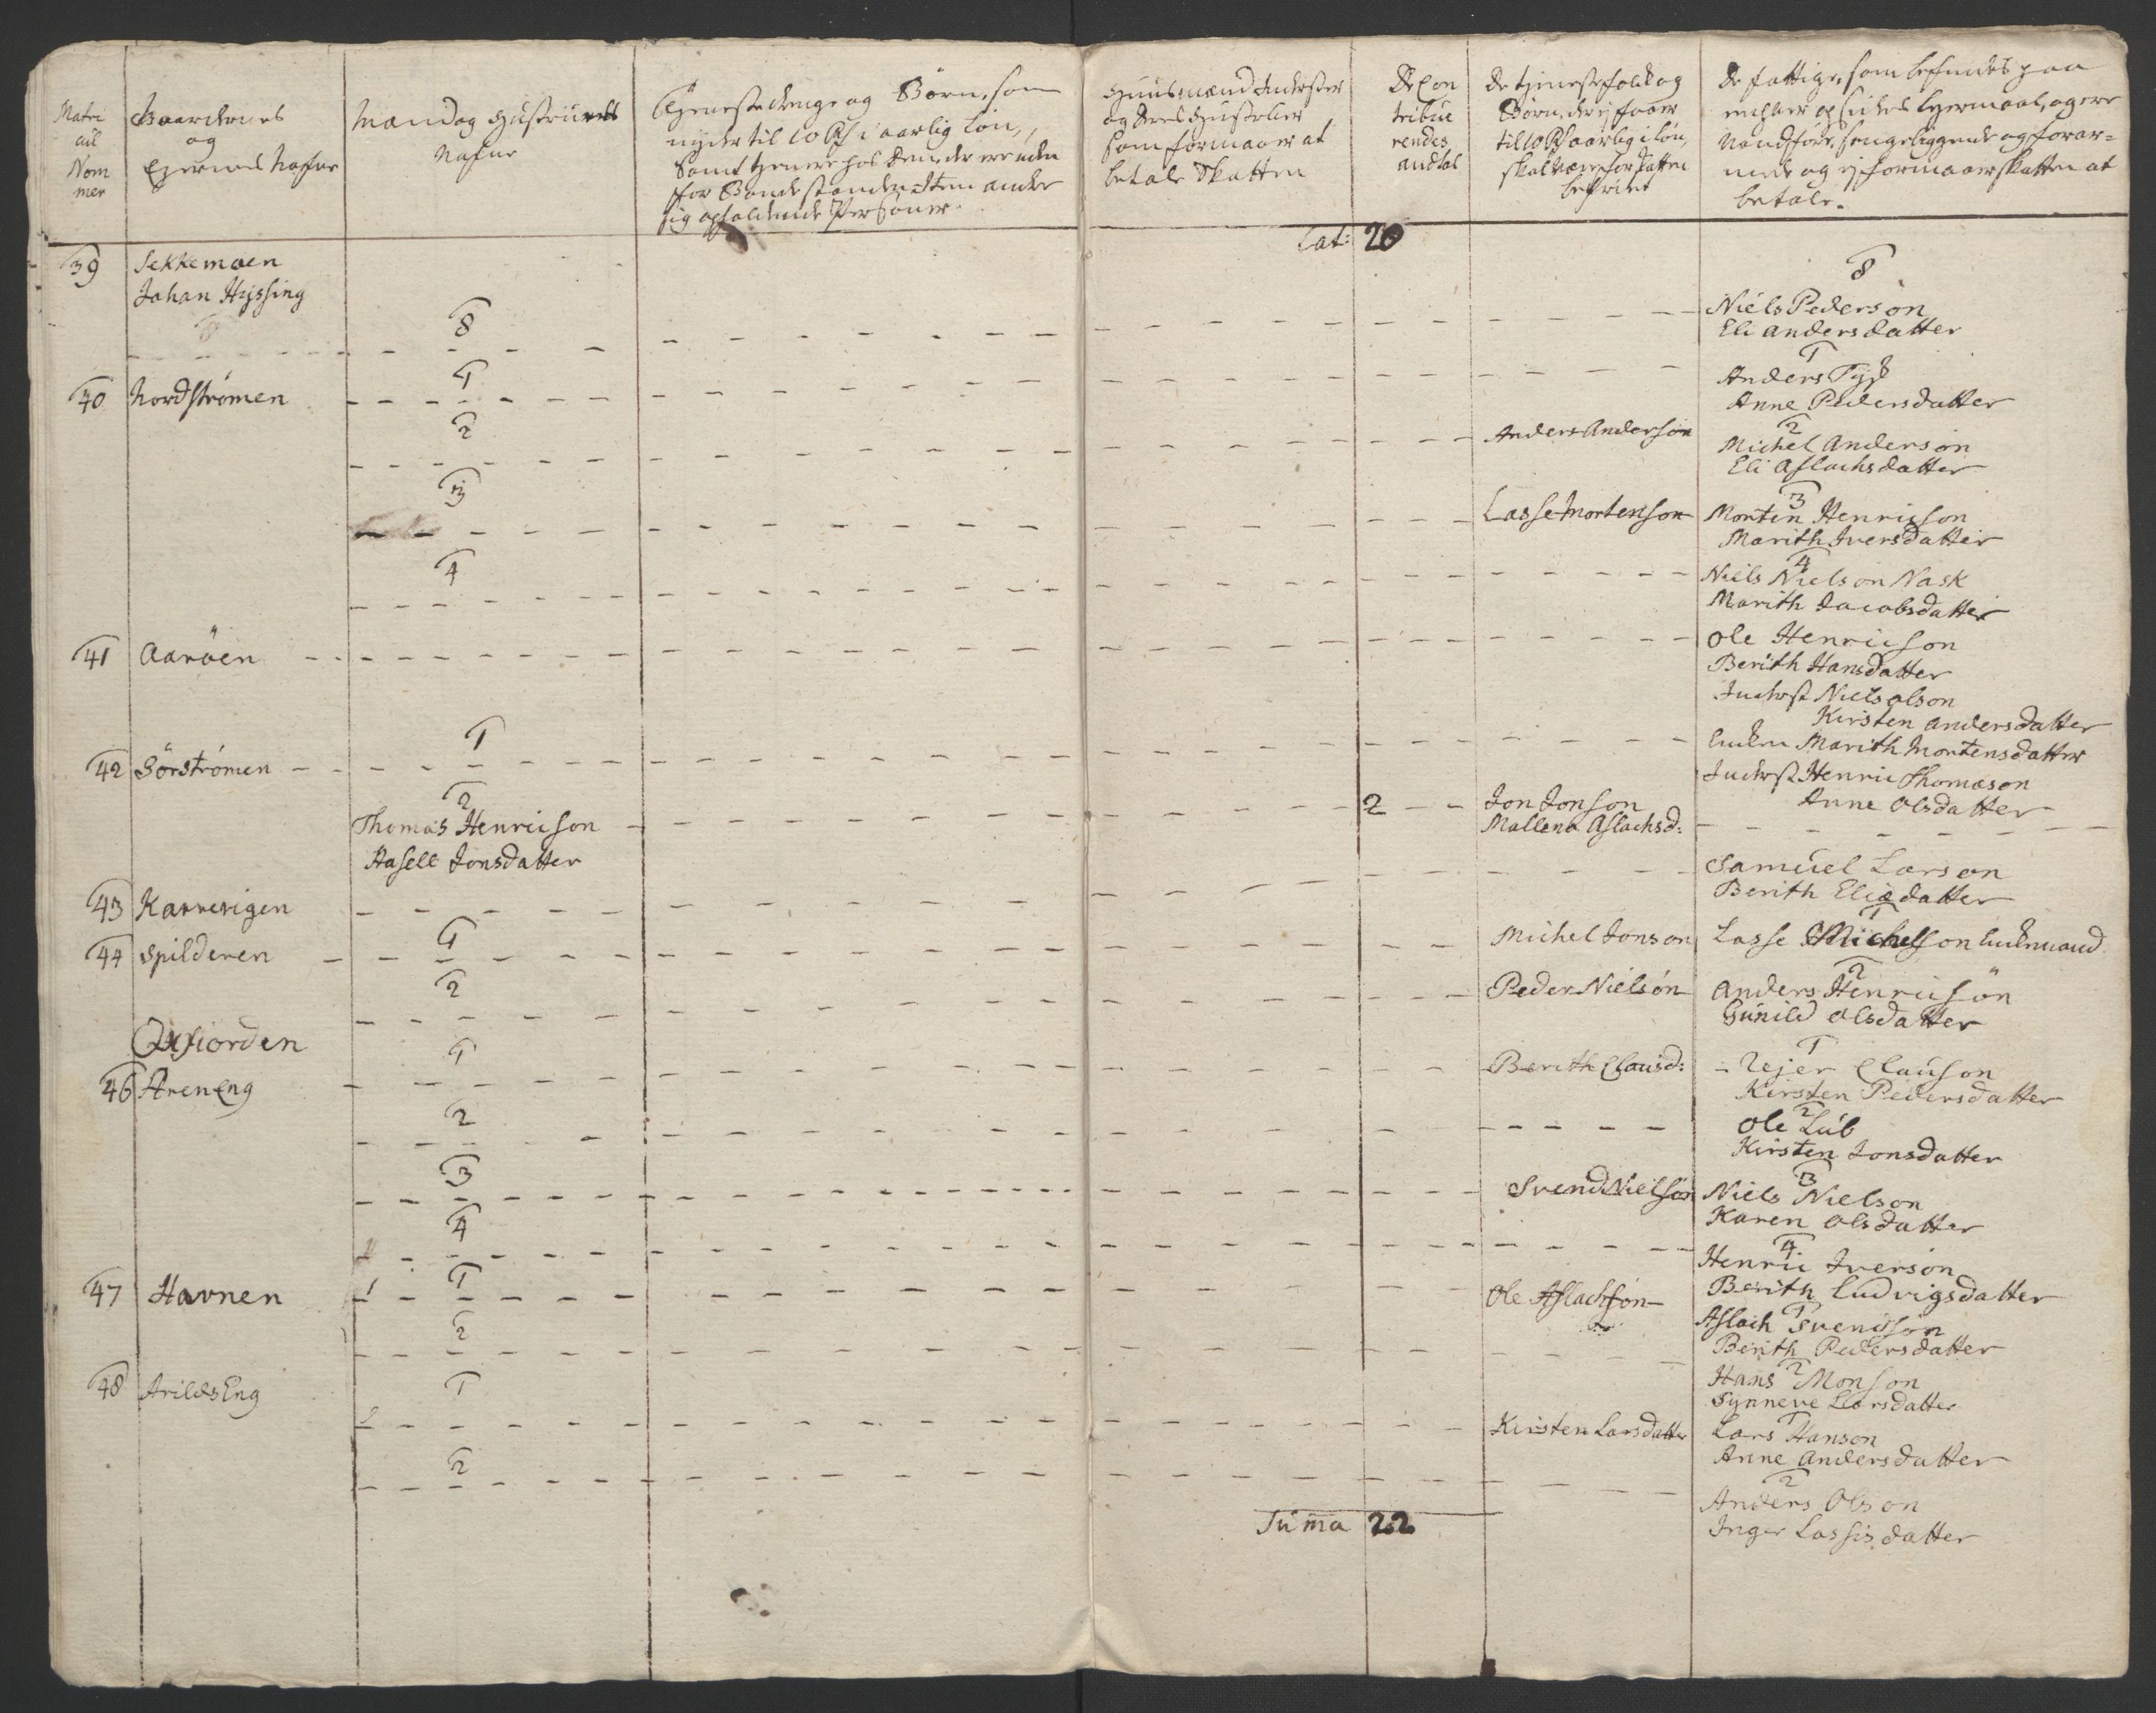 Matri
cul
Nom
mer
Gaardernes
og
Eyernes Nafne
Mænd og Hustruers
Nafne
Tjeneste drenge og Börn, som
nyder til 10 i aarlig Lön,
Samt tjener hos dem, der ere uden
for Bondestanden Item andre
sig opholdende Personer
Huusmænd Inderster
og deres Hustroer
som formaaer at
betale Skatten
De Con
tribue
rendes
andtal
De tjenestefolk og
Börn, der ej faaer
til 10 aarlig i Lön,
skal være for Skatten
befriet
De fattige, som befindes paa
vanföre, sengeliggende og forar-
mede og ej formaaer Skatten at
betale.
Lat: 20
39 Sekkemoen
Johan Hyssing
8
8
Niels Pederson
Eli Andersdatter
40 Nordströmen
1
1
Anders
Anne Pedersdatter
2
Anders Anderson
2
Michel Anderson
Eli Aslachsdatter
3
Lasse Mortenson
3
Morten Henricson
Marith Iversdatter
4
4
Niels Nielson Nask
Marith Jacobsdatter
41 Aaröen
Ole Henricson
Berith Hansdatter
Inderst Niels Olson
Kirsten Andersdatter
42 Sörströmen
1
Enken Marith Mortensdatter
Inderst Henric Thomæson
Anne Olsdatter
2
Thomas Henricson
Hasele Jonsdatter
2
Jon Jonson
Mallena Aslachsd:
43 Karvevigen
Samuel Larson
Berith Eliædatter
44 Spilderen
1
Michel Jonson
1
Lasse Michelson Enkemand
2
Peder Nielsön
2
Anders Henricsön
Gunild Olsdatter
Oxfiorden
46 Areneng
1
Berith Clausd:
1
Rejer Clauson
Kirsten Pedersdatter
2
2
Ole Lub
Kirsten Jonsdatter
3
Svend Nielsön
3
Niels Nielson
Karen Olsdatter
4
4
Henric Iverson
Berith Ludvigsdatter
47 Havnen
1
Ole Aslachson
1
Aslach Svendsön
Berith Pedersdatter
2
2
Hans Monson
Synneve Larsdatter
48 Arilds Eng
1
Kirsten Larsdatter
1
Lars Hanson
Anne Andersdatter
2
2
Anders Olson
Inger Lassisdatter
Suma 22